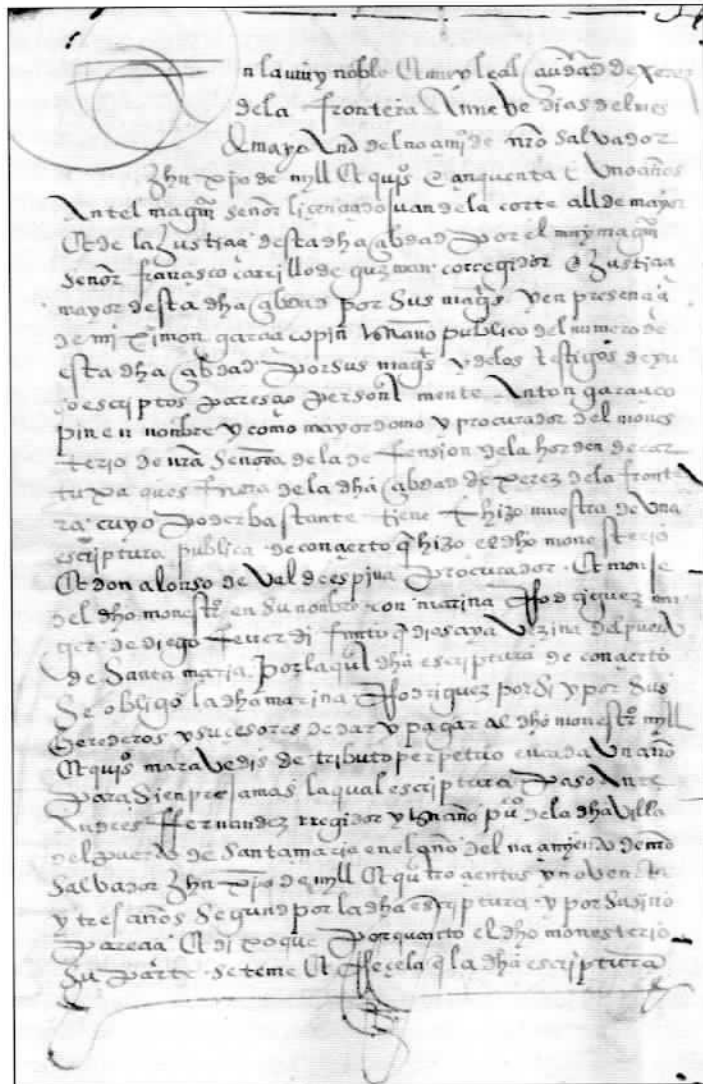 En la muy noble et muy leal çiudad de xerez
de la frontera nueve dias del mes
de mayo año del naçimi° de nro Salvador
Jhu xpo de myll et quis e çinquenta e un años
Ante el magco señor liçençiado juan de la corte allde mayor
et de la Justiçia desta dha çibdad por el muy magco
señor françisco carrillo de guzman corregidor e Justiçia
mayor desta dha çibdad por sus mags y en presençia
de mi ximon garçia copin escrivano publico del numero de
esta dha çibdad por sus mags y de los testigos de yu
so escriptos paresçio personal mente Anton garçia co
pin en nonbre y como mayordomo y procurador del mones
terio de nra Señora de la defension de la horden de car
tuxa ques fuera de la dha çibdad de xerez de la fronte
ra cuyo poder bastante tiene e hizo muestra de una
escriptura publica de conçierto q hizo el dho monesterio
et don alonso de Valdeespina procurador et monje
del dho monestro en su nonbre con marina Rrodriguez mu
ger de diego difunto q dios aya vezina del puerto
de Santa maria por la qual dha escriptura de conçierto
Se obligo la dha marina Rrodriguez por si y por sus
herederos y suçesores de dar y pagar al dho monestro myll
et quis maravedis de tributo perpetuo en cada un año
para sienpre jamas la qual escriptura paso ante
Andres Fernandez rregidor y escrivano puco de la dha villa
del puerto de Santa maria en el año del naçimyento de nro
Salvador Jhu xpo de myll et quatroçientos y noventa
y tres años Segund por la dha escriptura y por su sino
pareçia et dixo que por quanto el dho monesterio
Su parte se teme et Rreçela q la dha escriptura